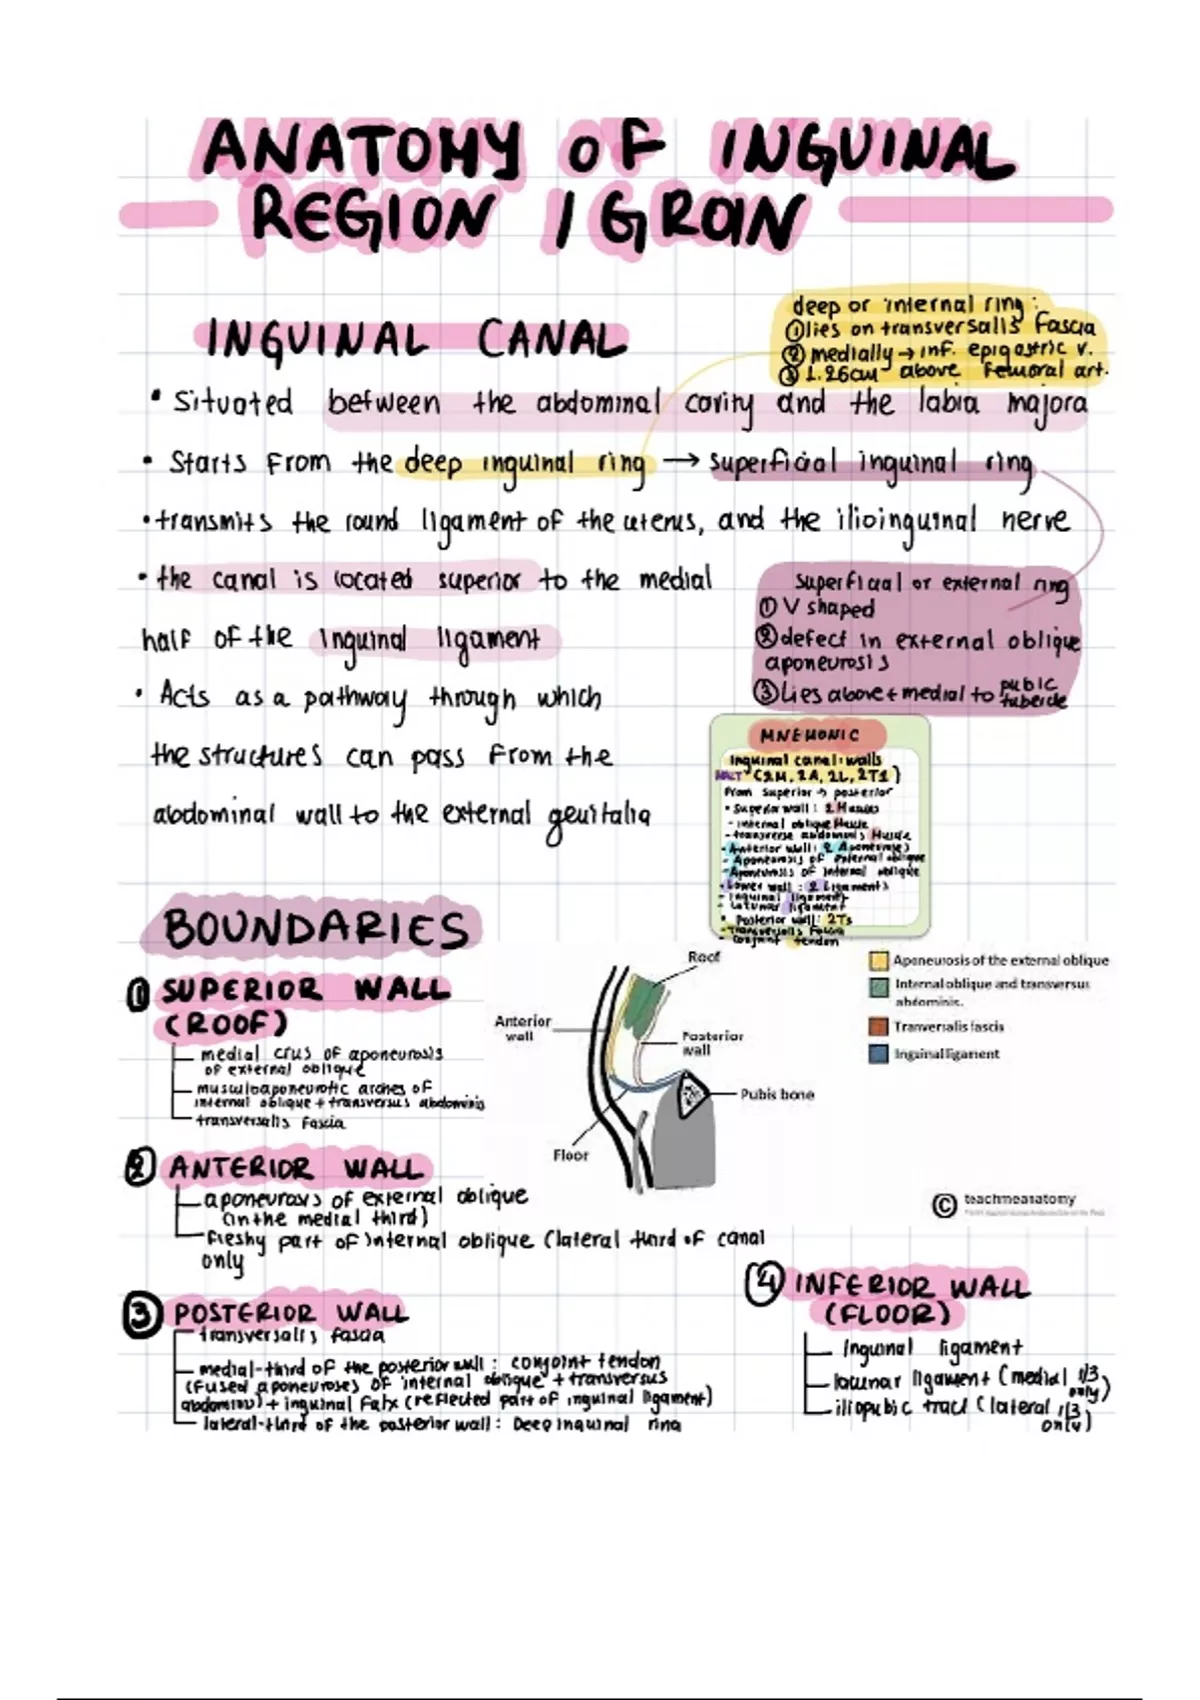 ANATOMY OF INGUINAL
REGION / GROIN
INGUINAL CANAL
deep or internal ring :
① lies on transversalis fascia
② medially → inf. epigastric v.
③ 1.26cm above femoral art.
• Situated between the abdominal cavity and the labia majora
• Starts from the deep inguinal ring → superficial inguinal ring
• transmits the round ligament of the uterus, and the ilioinguinal nerve
• the canal is located superior to the medial
half of the inguinal ligament
• Acts as a pathway through which
the structures can pass from the
abdominal wall to the external genitalia
superficial or external ring
① V shaped
② defect in external oblique
aponeurosis
③ Lies above + medial to pubic tubercle
MNEMONIC
Inguinal canal: walls
MALT (2M, 2A, 2L, 2T)
From superior → posterior
• Superior wall : 2 Muscles
- internal oblique Muscle
- transverse abdominis Muscle
• Anterior wall: 2 Aponeuroses
- Aponeurosis of external oblique
- Aponeurosis of internal oblique
• Lower wall : 2 Ligaments
- Inguinal ligament
- Lacunar ligament
• Posterior wall: 2Ts
- Transversalis Fascia
- conjoint tendon
BOUNDARIES
① SUPERIOR WALL
(ROOF)
medial crus of aponeurosis
of external oblique
musculoaponeurotic arches of
internal oblique + transversus abdominis
transversalis fascia
Roof
Anterior
wall
Posterior
wall
Pubis bone
Floor
Aponeurosis of the external oblique
Internal oblique and transversus
abdominis.
Tranversalis fascia
Inguinal ligament
© teachmeanatomy
② ANTERIOR WALL
aponeurosis of external oblique
(in the medial third)
fleshy part of internal oblique (lateral third of canal
only
③ POSTERIOR WALL
transversalis fascia
medial-third of the posterior wall : conjoint tendon
(fused aponeuroses of internal oblique + transversus
abdominis) + inguinal falx (reflected part of inguinal ligament)
lateral-third of the posterior wall : Deep inguinal ring
④ INFERIOR WALL
(FLOOR)
Inguinal ligament
lacunar ligament (medial 1/3
only)
iliopubic tract (lateral 1/3
only)